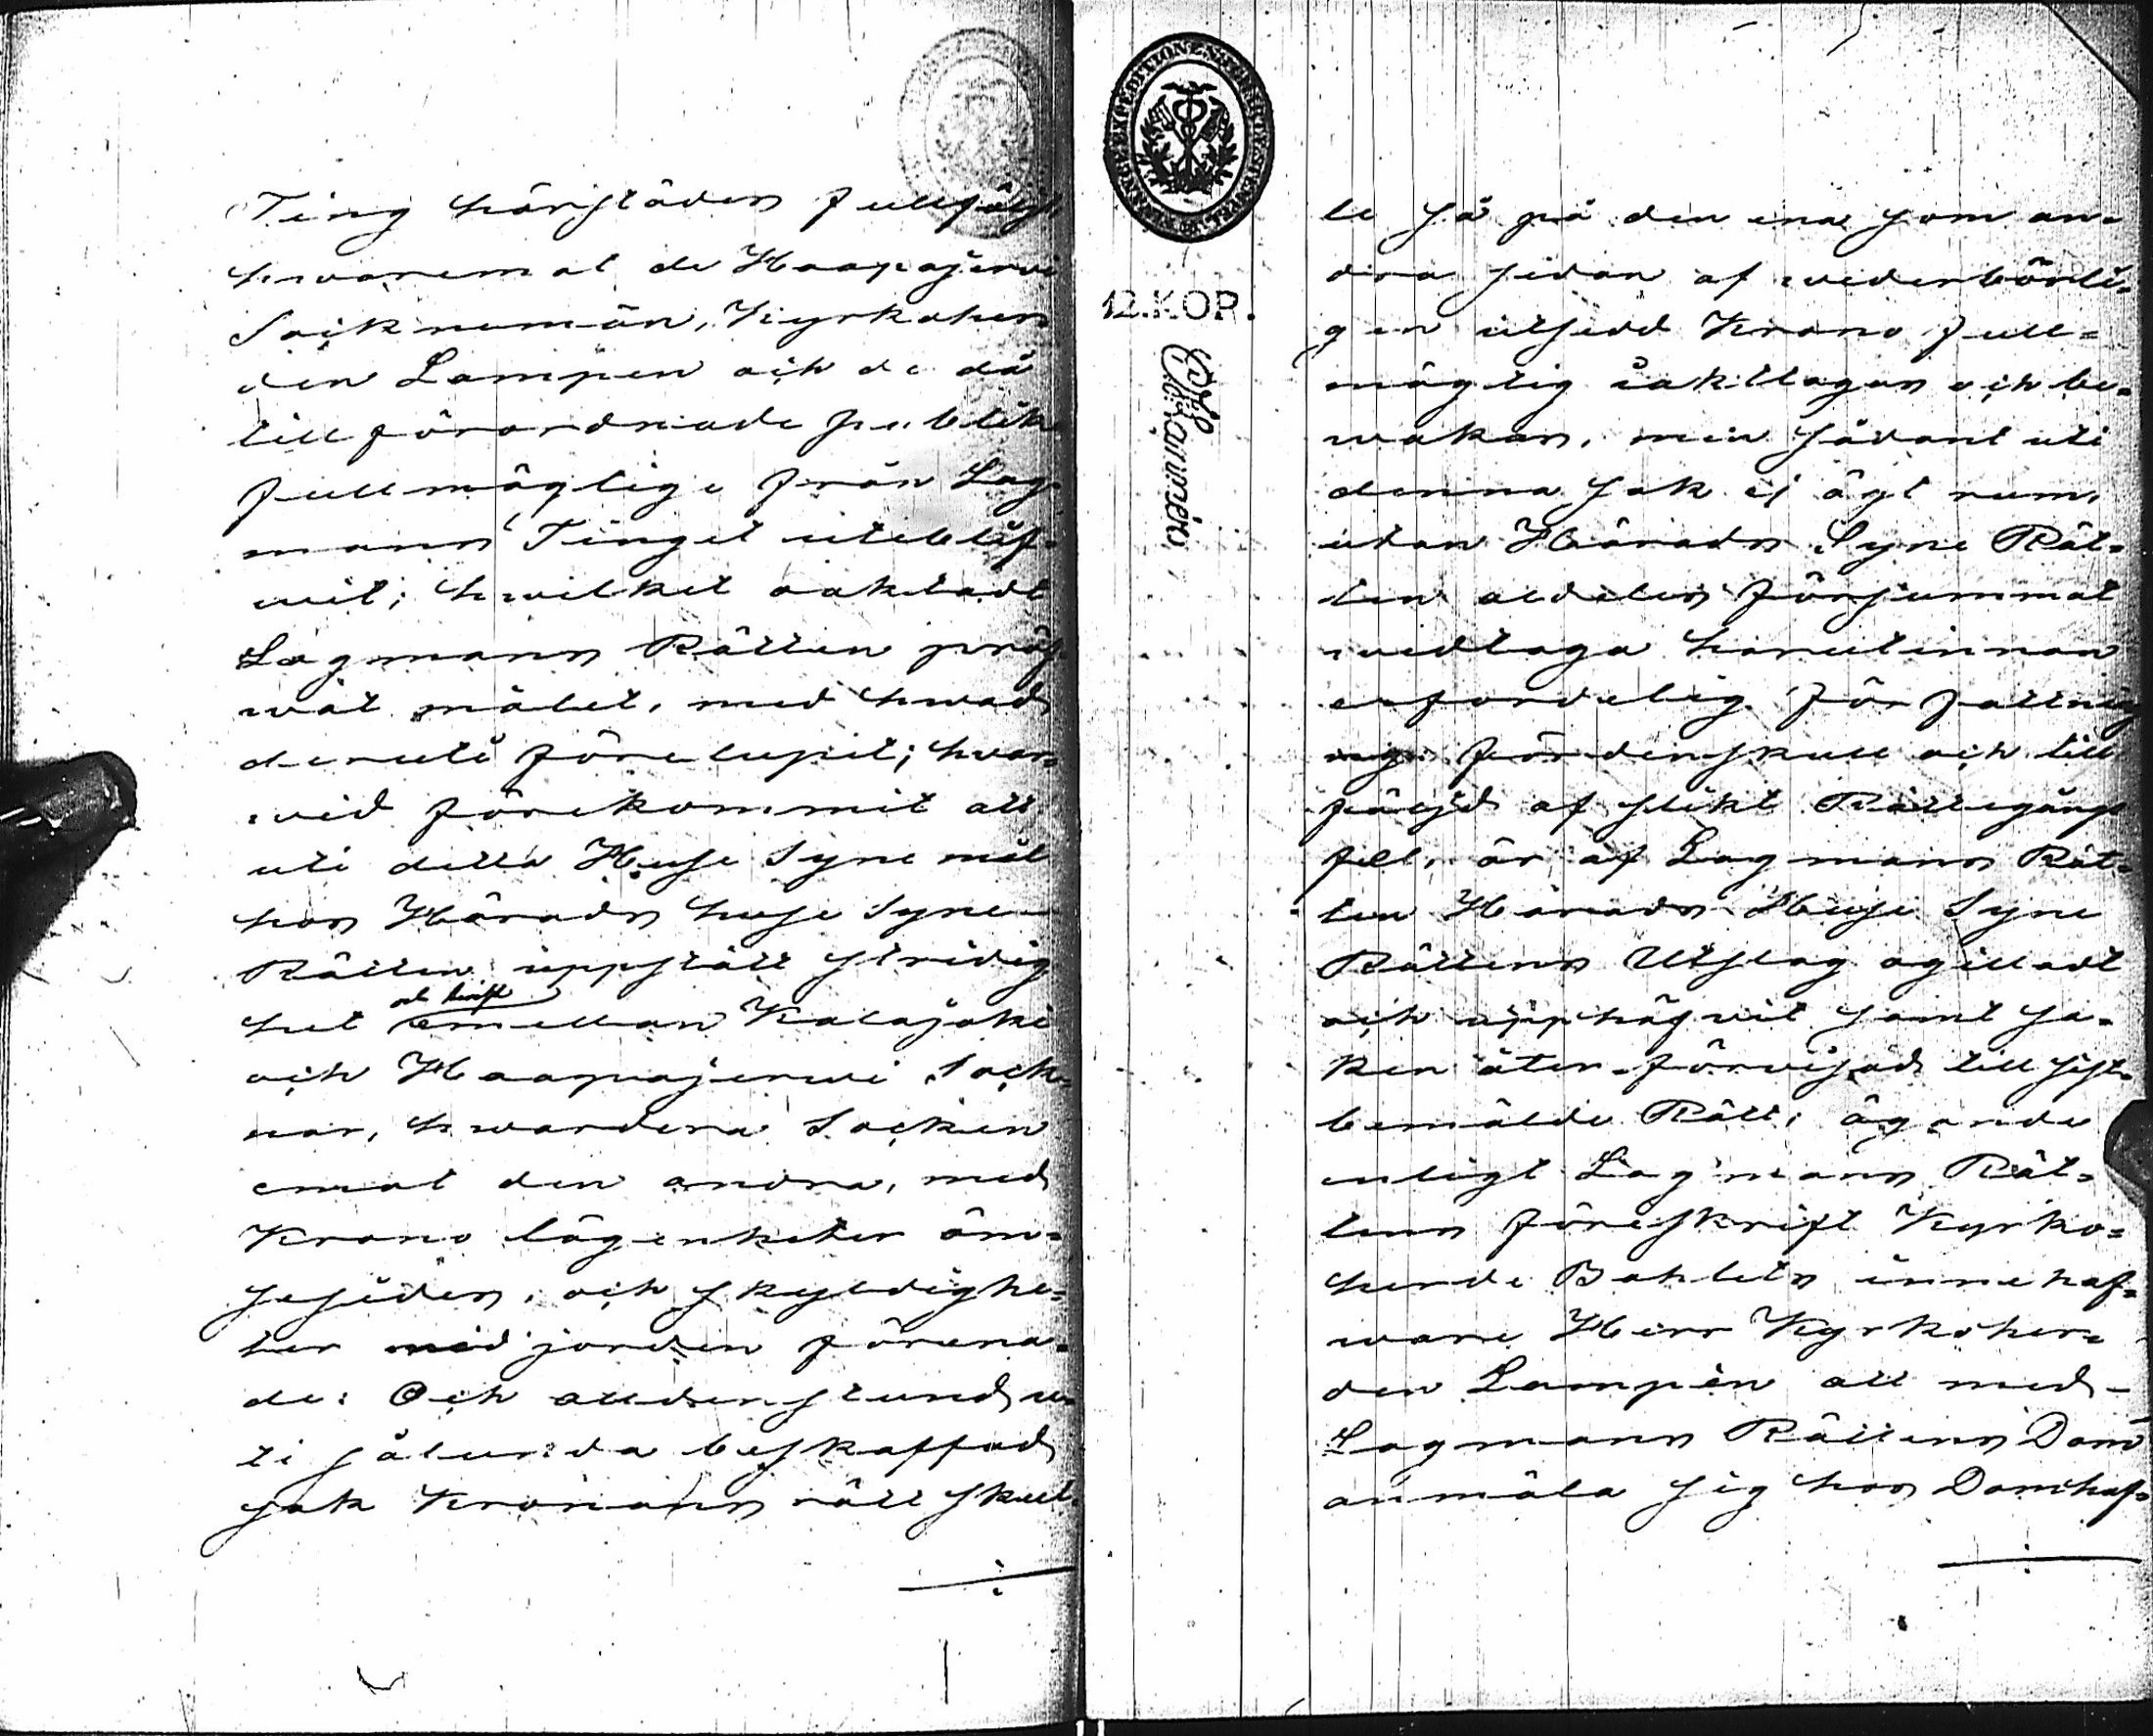 Ting härstädes fullfölgt
hwaremot de Haapajerwi
Socknemän, Kyrkoher=
den Lampen och de då
tillförordnade publike
fullmägtige från Lag=
mans Tinget uteblif=
wit; hwilket oaktadt
Lagmans Rätten pröf=
wat målet, med hwad
deruti förelupit; hvar=
wid förekommit att
uti detta Huse Syne mål
hos Härads huse Syne
Rätten uppstått stridig
het och twist emellan Kalajoki
och Haapajerwi Sock=
nar, hwardera Socken
emot den andra, med
Krono lägenheter öm=
se sidor, och skyldighe=
ter med jorden förena=
de: Och alldenstund u=
ti sålunda beskaffad
sak Kronans rätt skul=
12.KOP.
le så på den ena som an=
dra sidan af wederbörli=
gen utsedd Krono full=
mägtig iakttagas och be=
wakas, men sådant uti
denna sak ej ägt rum,
utan Härads Syne Rät=
ten aldeles försummat
widtaga harutinnan
erforderlig författning
ng; fördenskull och till
följd af slikt Rättegångs
fel, är af Lagmans Rät=
ten Härads Huse Syne
Rättens Utslag ogilladt
och upphäfvit samt sa=
ken åter förvisad till sist=
bemälde Rätt; ägande
enligt Lagmans Rät=
tens föreskrift Kyrko=
herde Bohlets innehaf=
ware Herr Kyrkoher=
den Lampèn att med
Lagmans Rättens Dom
anmäla sig hos Domhaf=